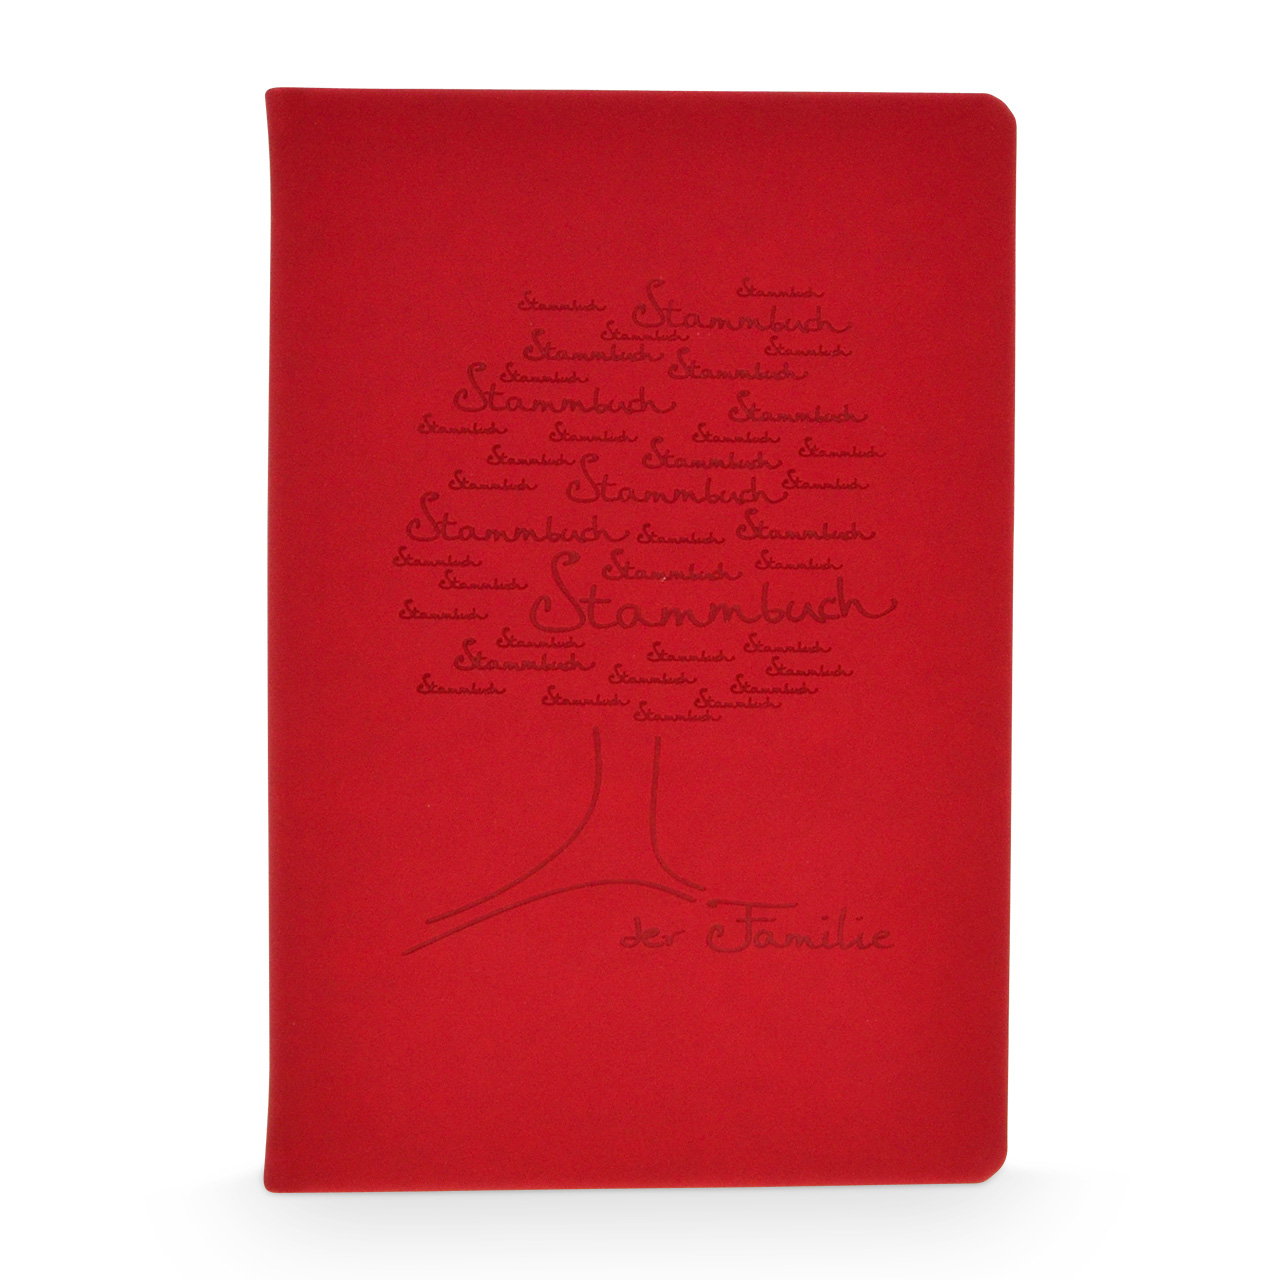 Stammbuch
Stammbuch Stammbuch
Stammbuch
Stammbuch Stammbuch
Stammbuch Stammbuch
Stammbuch
Stammbuch Stammbuch
Stammbuch Stammbuch Stammbuch
Stammbuch
Stammbuch Stammbuch
Stammbuch Stammbuch Stammbuch
Stammbuch Stammbuch Stammbuch
Stammbuch Stammbuch Stammbuch
Stammbuch
Stammbuch Stammbuch
Stammbuch Stammbuch
Stammbuch Stammbuch Stammbuch
Stammbuch Stammbuch Stammbuch
Stammbuch Stammbuch
Stammbuch
der Familie